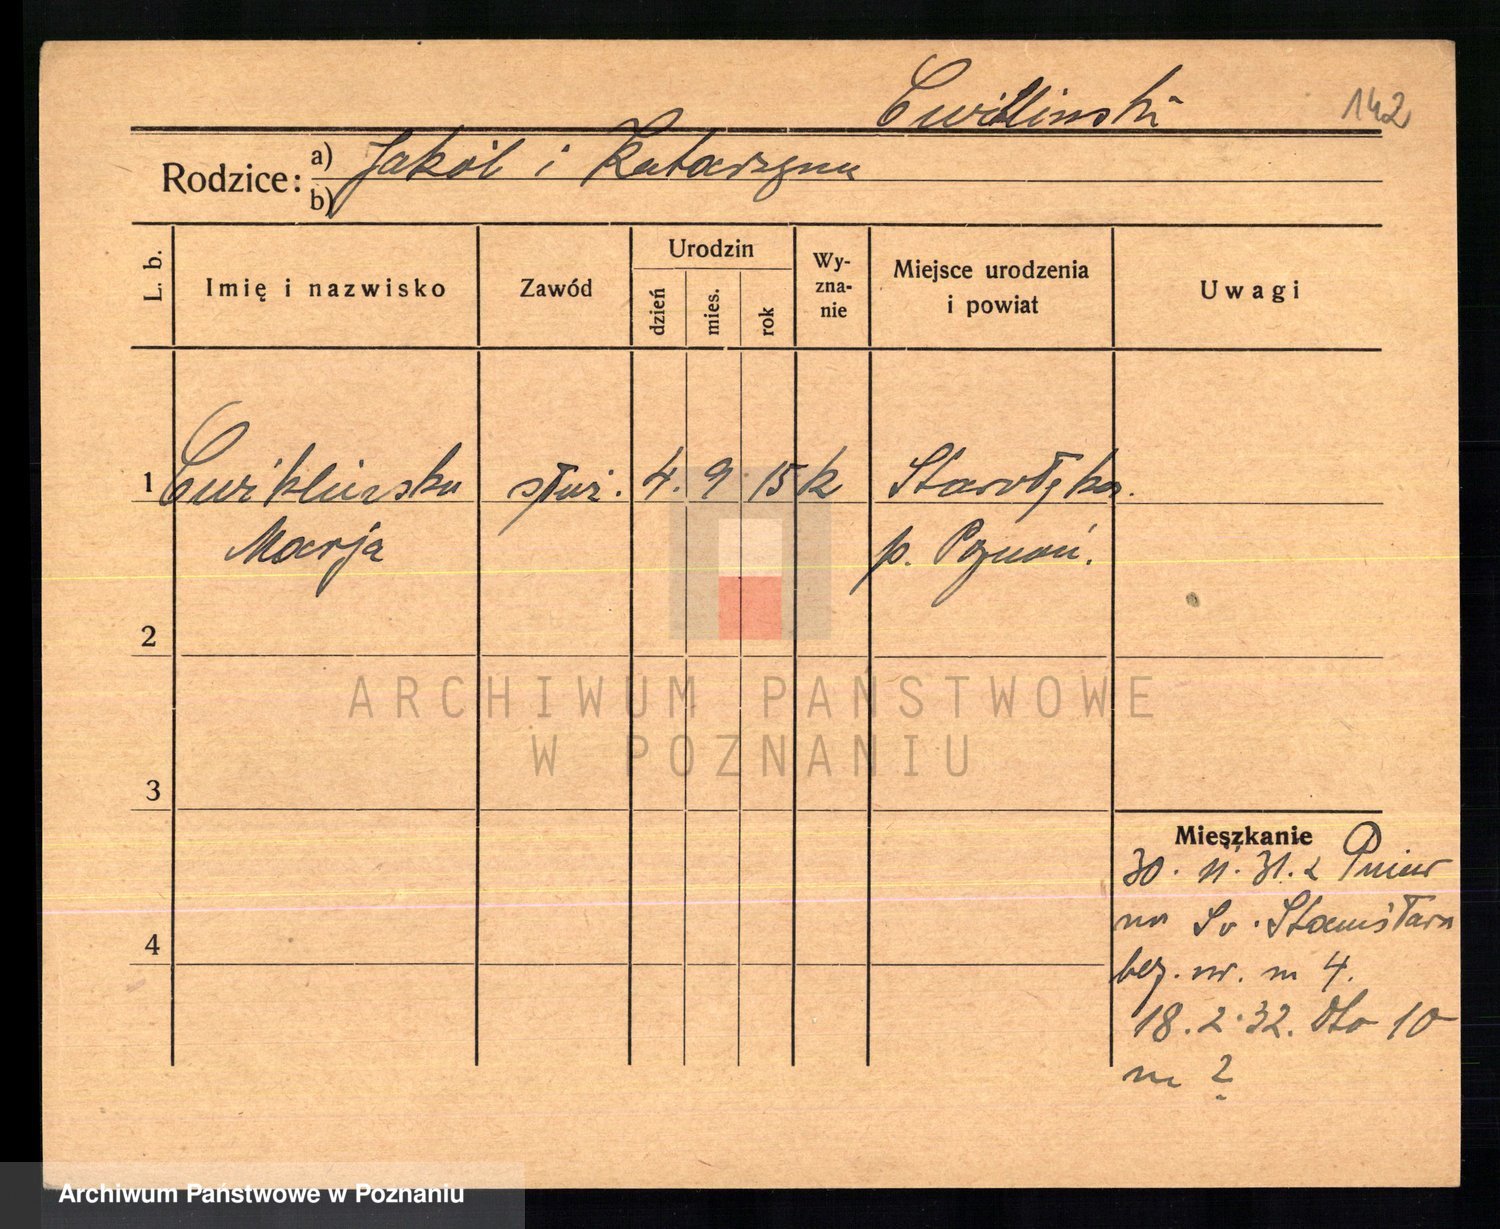 Cwiklinski 142
Rodzice: a) Jakób i Katarzyna
b)
L. b. Imię i nazwisko Zawód Urodzin dzień mies. rok Wy-zna-nie Miejsce urodzenia i powiat Uwagi
1 Cwiklinska służ. 4. 9. 15 k Starołęka.
Marja p. Poznań.
2
ARCHIWUM PAŃSTWOWE
W POZNANIU
3
Mieszkanie
30. 11. 31. z Pniew
na Św. Stanisława
4
bez. nr. m 4.
18. 2. 32. dto 10
m 2
Archiwum Państwowe w Poznaniu